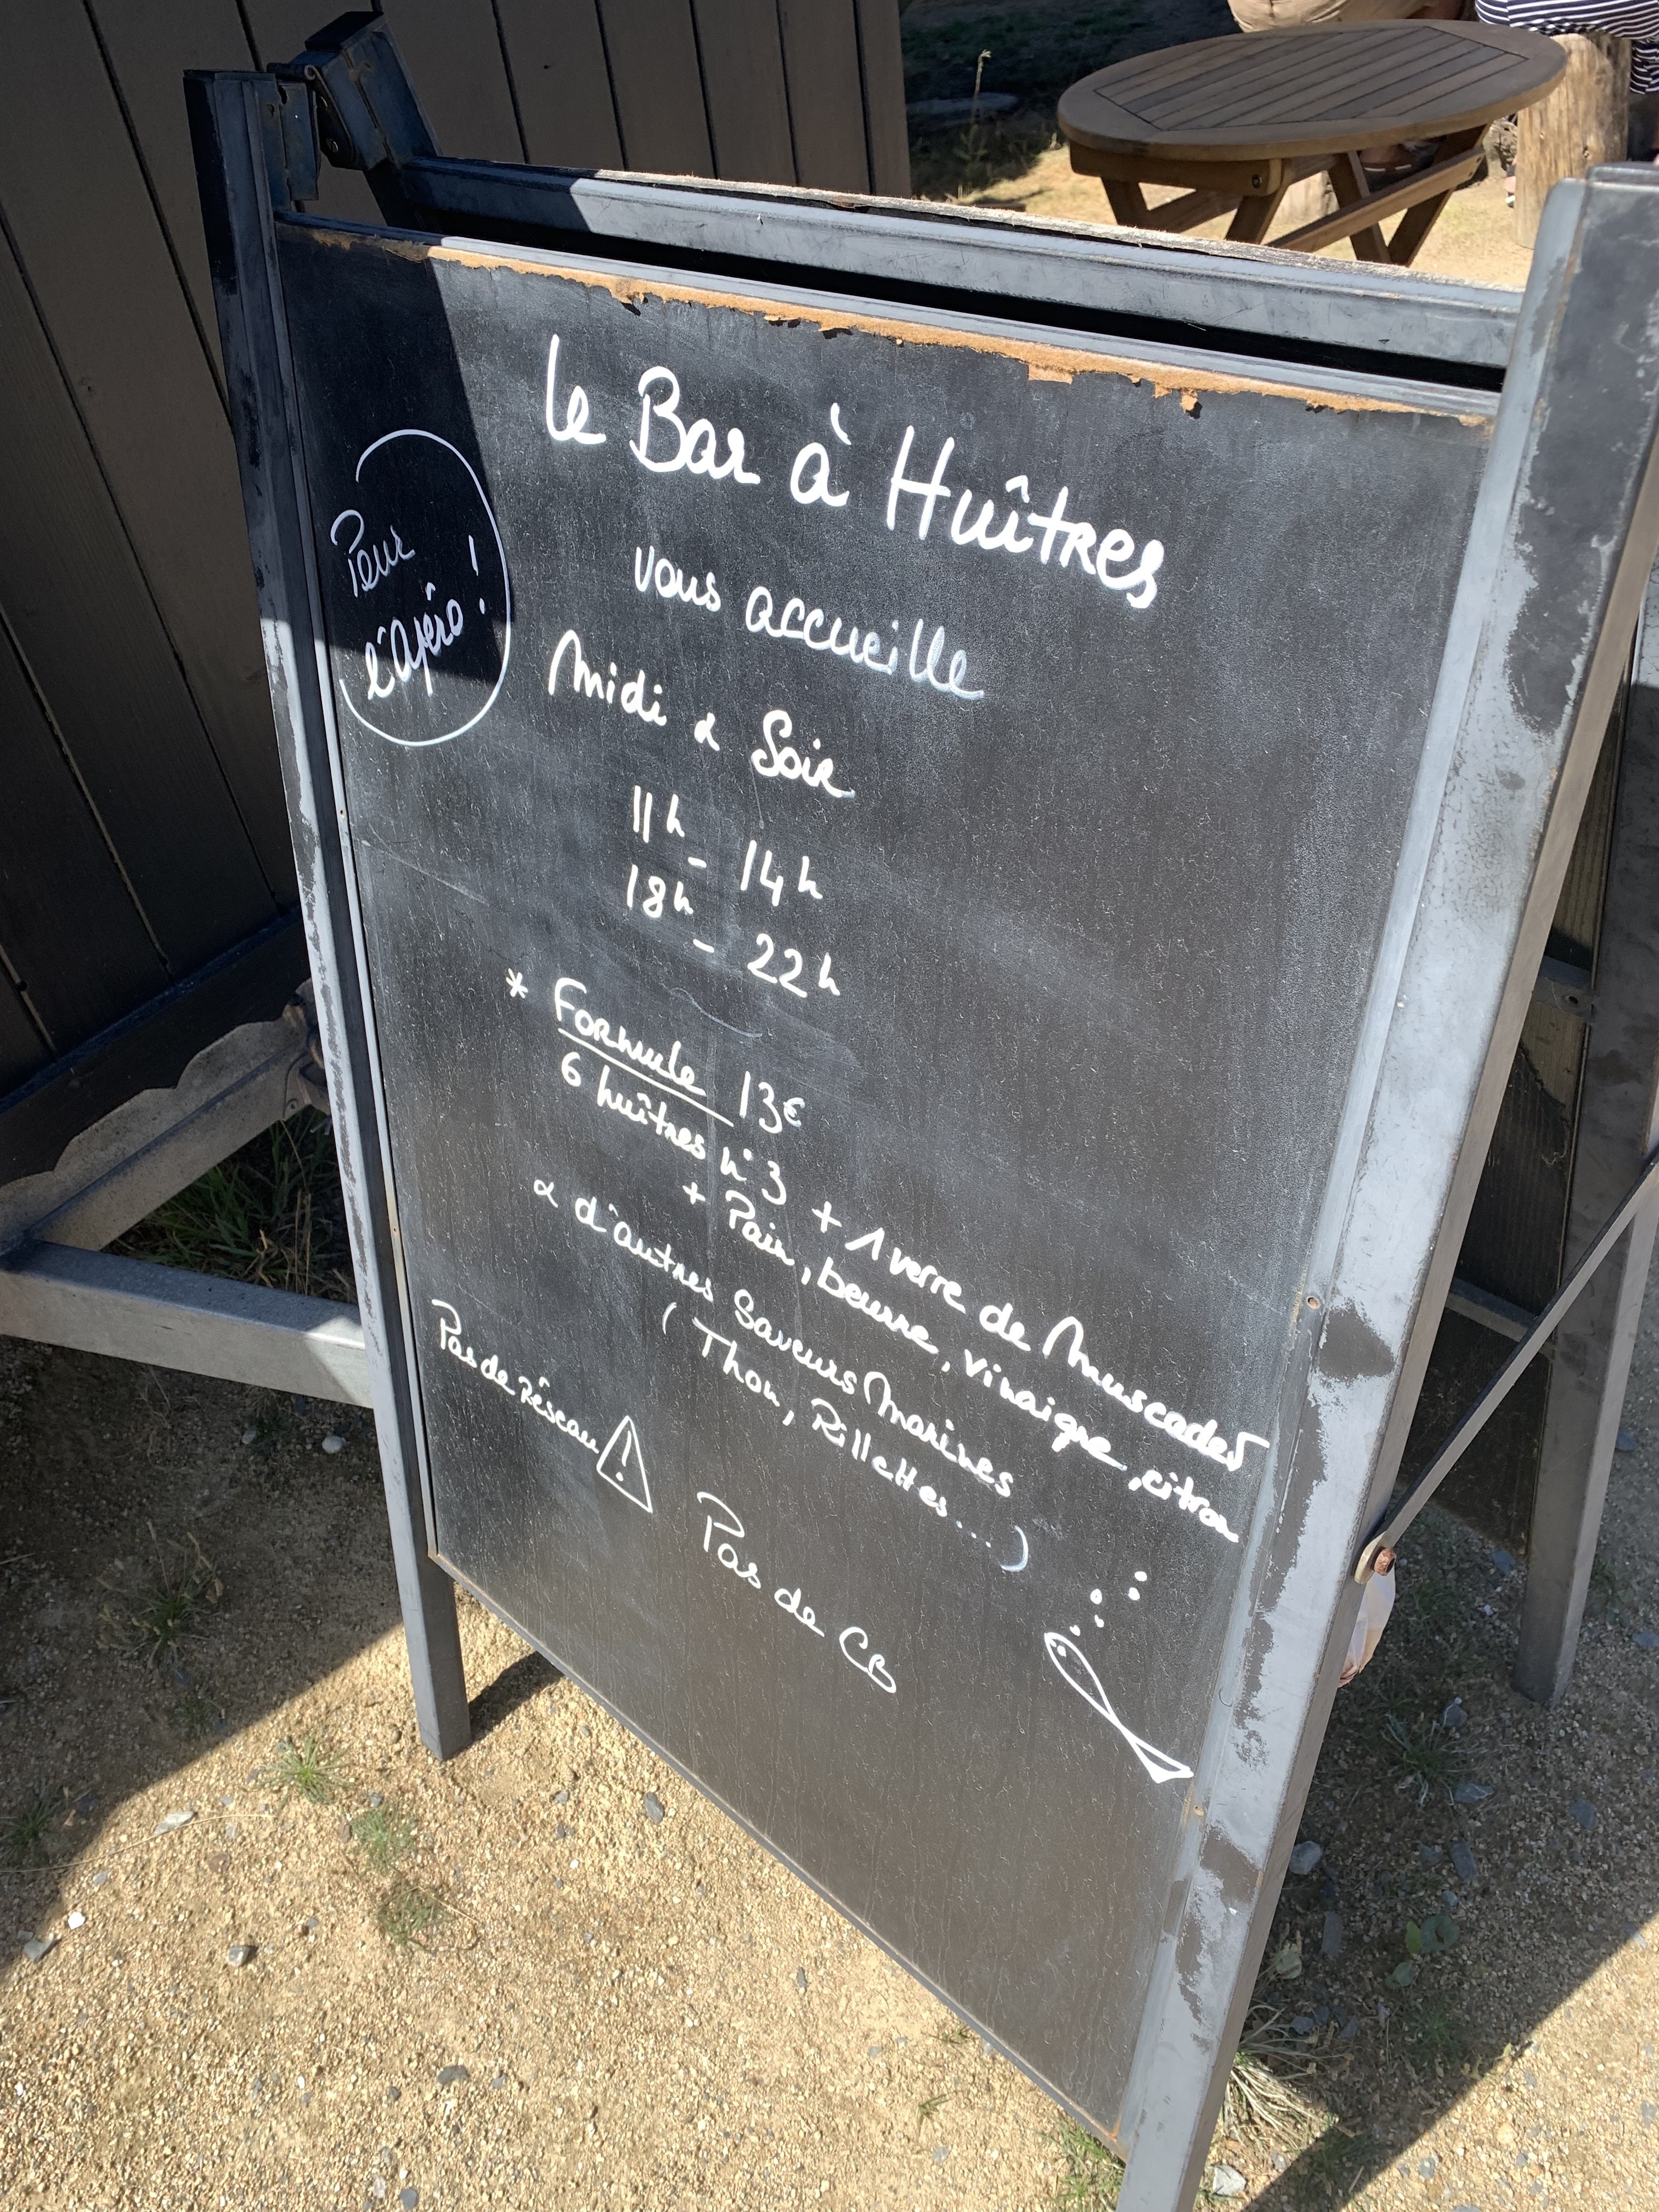 Le Bar à Huîtres
Pour
l'Apéro !
vous accueille
Midi & Soir
11h - 14h
18h - 22h
* Formule 13€
6 huîtres n°3 + 1 verre de Muscadet
+ Pain, beurre, vinaigre, citron
& d'autres Saveurs Marines
( Thon, Rillettes...)
Pas de Réseau ! Pas de CB